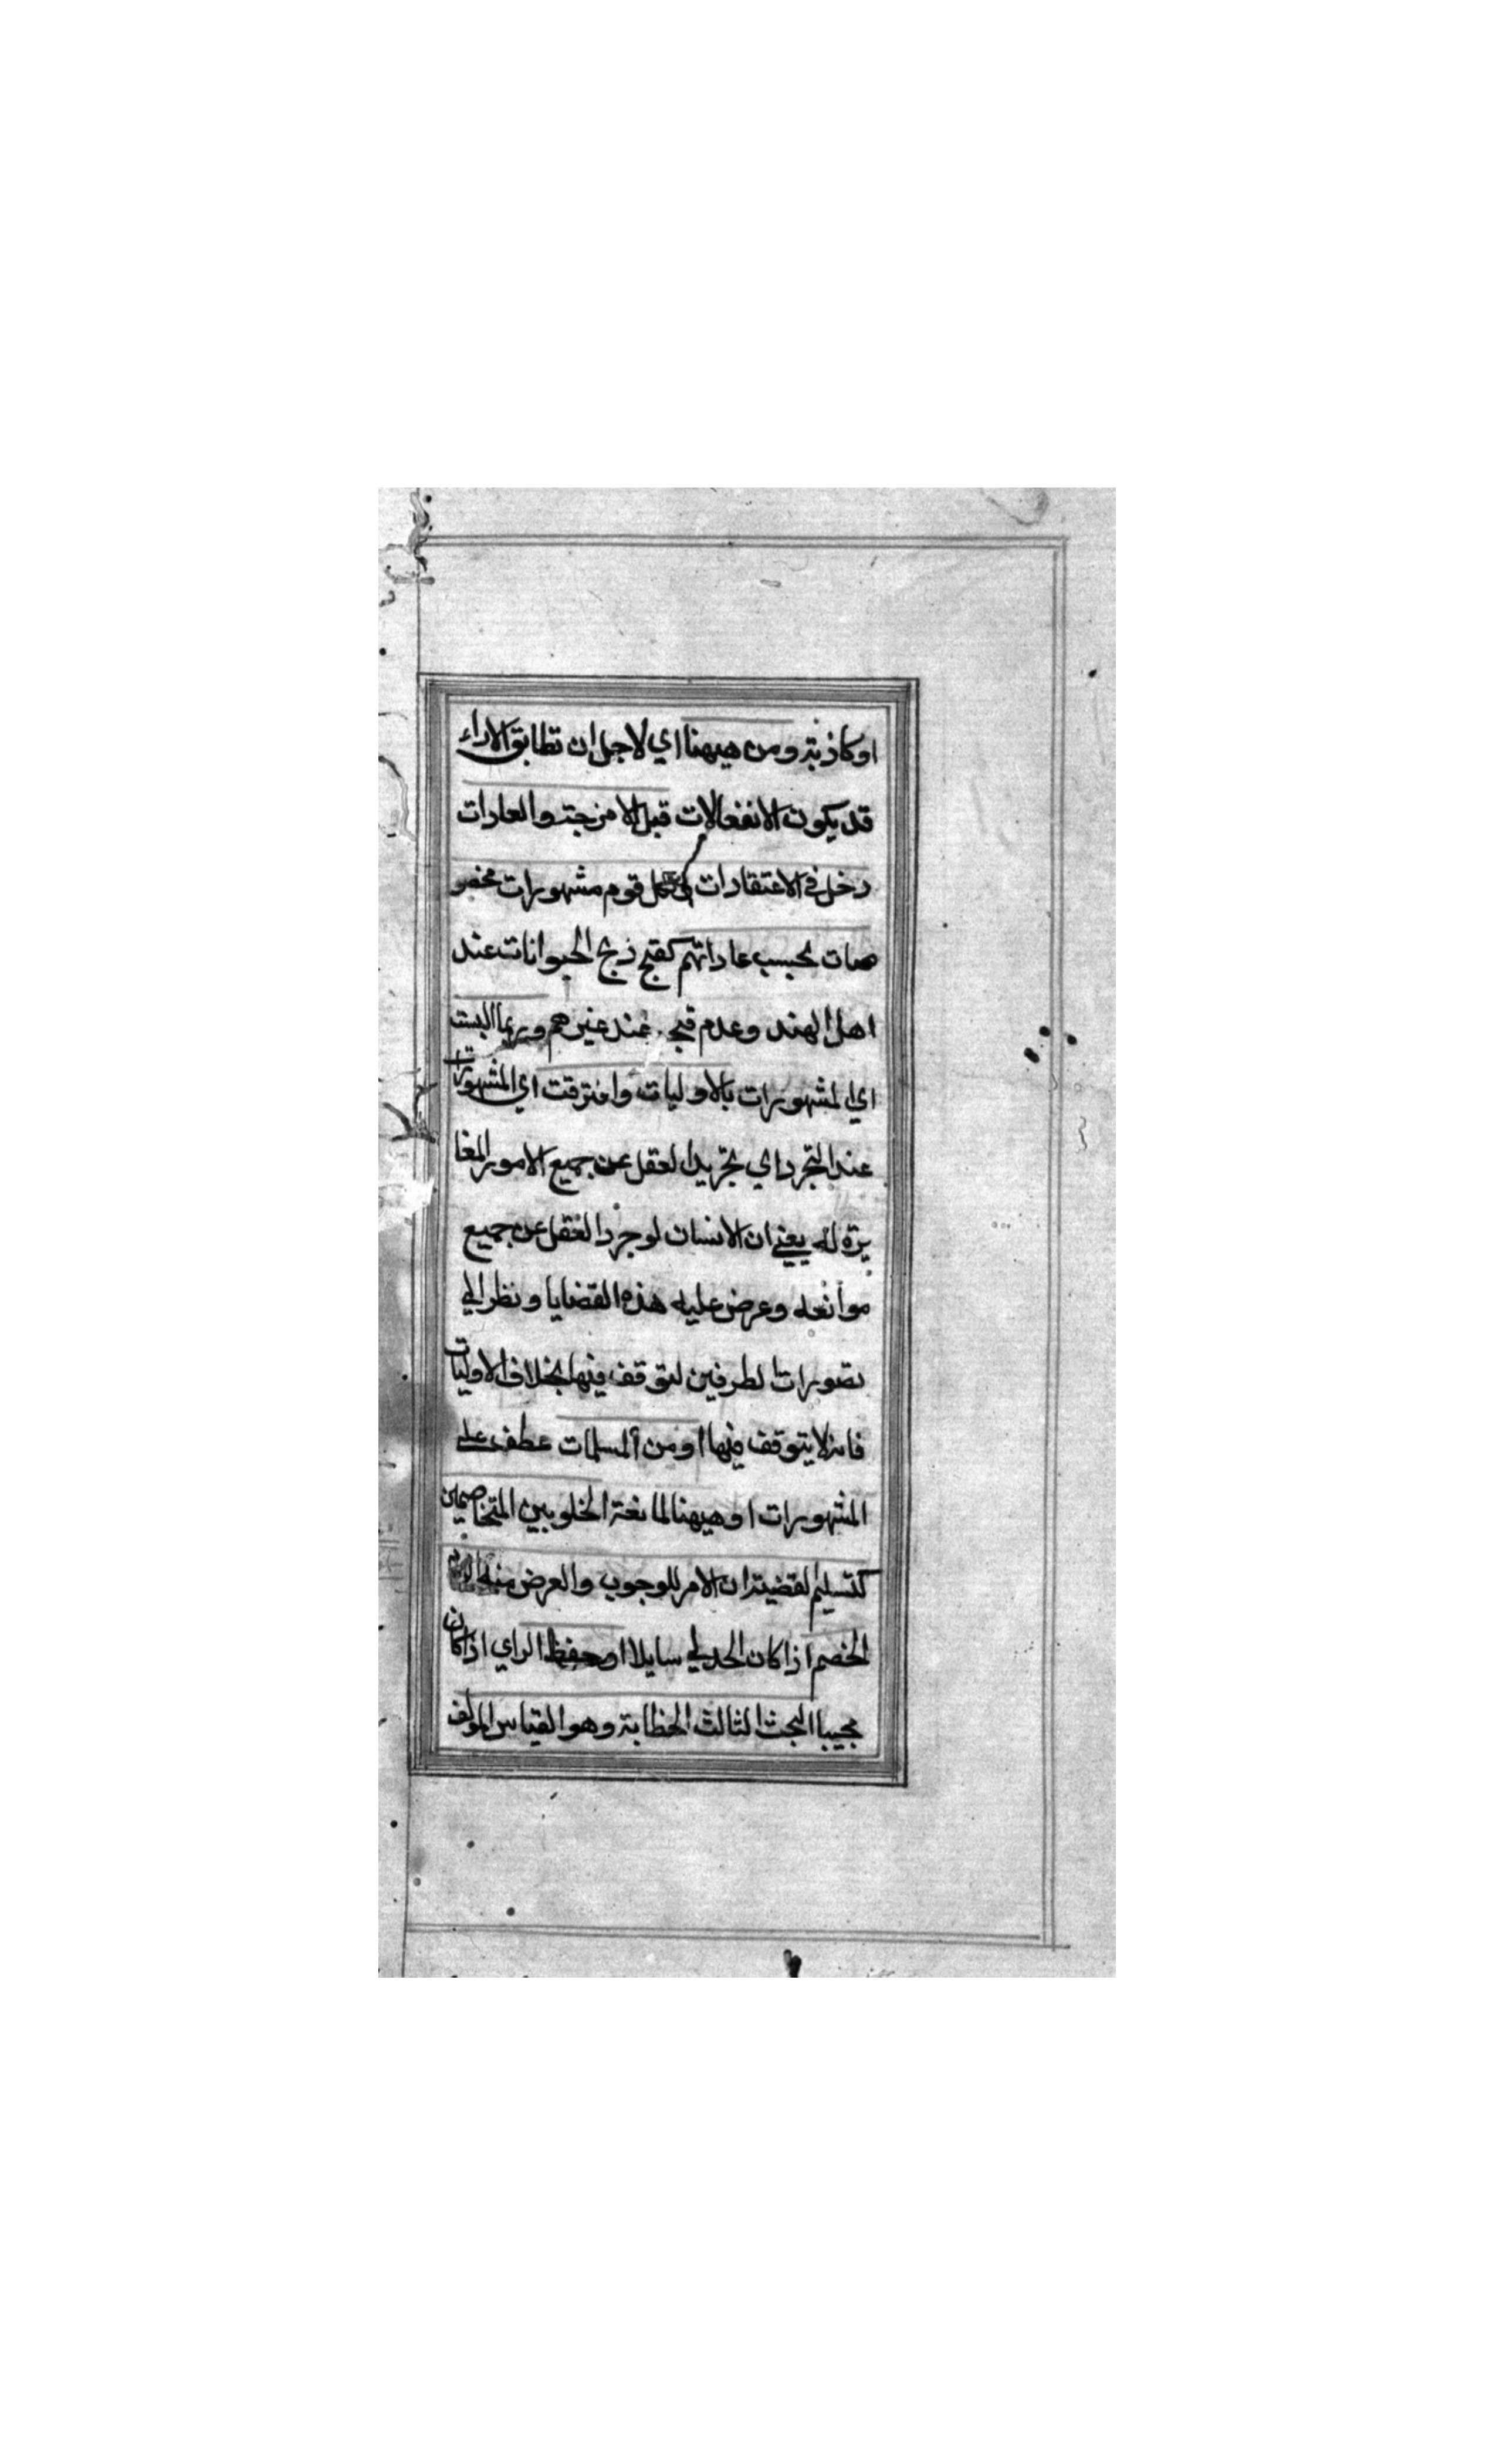 او كاذبة ومن هيهنا اي لاجل ان تطابق الاراء
قد يكون الانفعالات قبل الامزجة والعادات
دخل في الاعتقادات كل قوم مشهورات مخصو
صات بحسب عاداتهم كقبح ذبح الحيوانات عند
اهل الهند وعدم قبحه عند غيرهم وربما البست
اي المشهورات بالاوليات وافترقت اي المشهورات
عند التجرد اي بتجريد العقل عن جميع الامور المغا
يرة له يعني ان الانسان لو جرد العقل عن جميع
موانعه وعرض عليه هذه القضايا ونظر الي
تصورات الطرفين لتوقف فيها بخلاف الاوليات
فانه لا يتوقف فيها او من المسلمات عطف علي
المشهورات او هيهنا لمانعة الخلو بين المتخاصمين
كتسليم القضية ان الامر للوجوب والغرض منه
الخصم اذا كان الجدلي سايلا او حفظ الراي اذا كان
مجيبا البحث الثالث الخطابة وهو القياس المولف